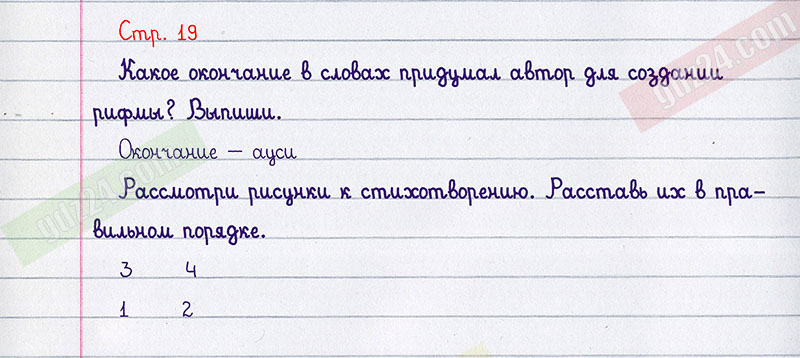 Стр. 19
Какое окончание в словах придумал автор для создании
рифмы? Выпиши.
Окончание – ауси
Рассмотри рисунки к стихотворению. Расставь их в пра-
вильном порядке.
3 4
1 2
gdz24.com
gdz24.com